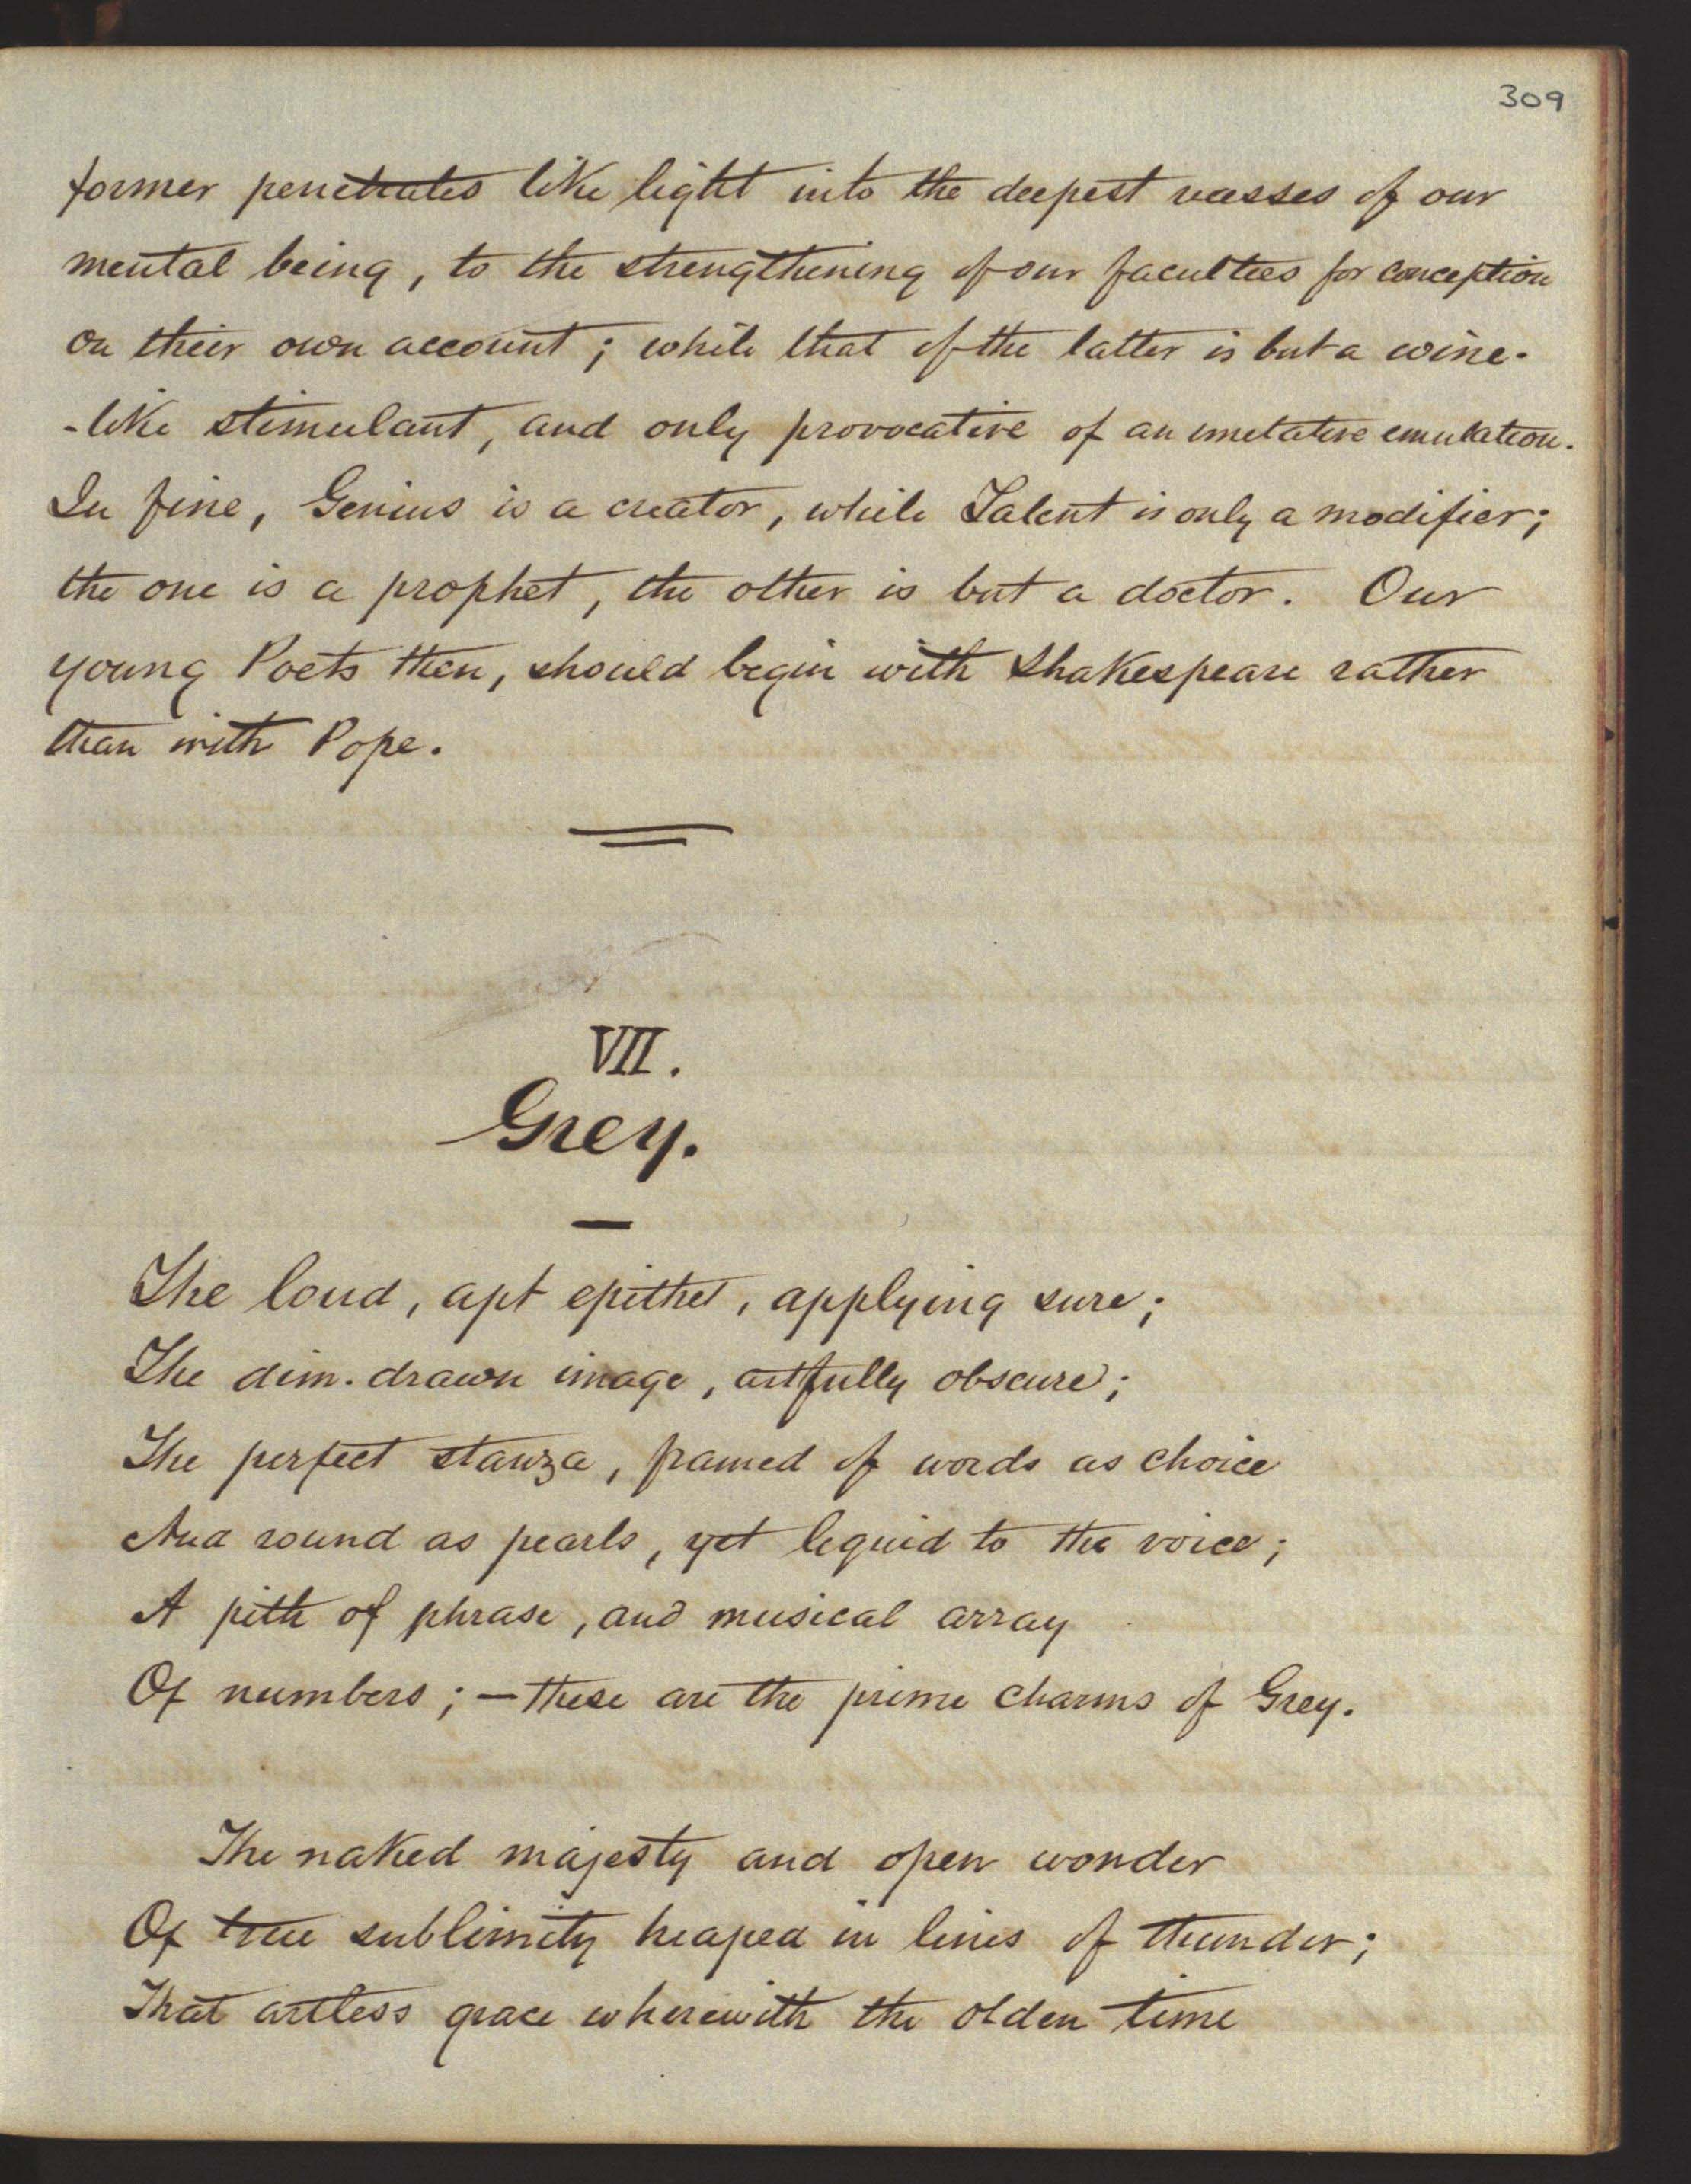 309
former penetrates like light into the deepest recesses of our
mental being, to the strengthening of our faculties for conception
on their own account; while that of the latter is but a wine-
-like stimulant, and only provocative of an imitative emulation.
In fine, Genius is a creator, while Talent is only a modifier;
the one is a prophet, the other is but a doctor. Our
young Poets then, should begin with Shakespeare rather
than with Pope.
VII.
Grey.
The loud, apt epithet, applying sure;
The dim-drawn image, artfully obscure;
The perfect stanza, framed of words as choice
And round as pearls, yet liquid to the voice;
A pith of phrase, and musical array
Of numbers; — these are the prime charms of Grey.
The naked majesty and open wonder
Of true sublimity heaped in lines of thunder;
That artless grace wherewith the olden time